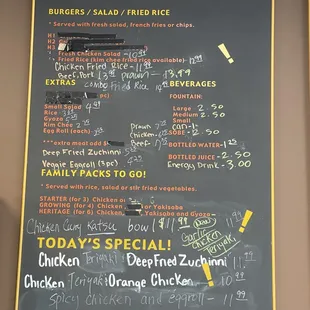 BURGERS / SALAD / FRIED RICE
* Served with fresh salad, french fries or chips.
H1
H2
H3
* Fresh Chicken Salad - 10.99
* Fried Rice (kim chee fried rice available) - 12.99
Chicken Fried Rice - 11.99
Beef, Pork 13.99 prawn - 13.99
combo Fried Rice
EXTRAS
Small Salad 4.99
Rice
Gyoza
Kim Chee 2
Egg Roll (each)
Prawn
chicken
Beef
**extra meat add
Deep Fried Zucchini
Veggie Eggroll (3pc)
BEVERAGES
FOUNTAIN:
Large - 2.50
Medium 2.50
Small
can - 1
SOBE - 2.50
BOTTLED WATER - 1
BOTTLED JUICE - 2.50
Energy Drink - 3.00
FAMILY PACKS TO GO!
* Served with rice, salad or stir fried vegetables.
STARTER (for 3) Chicken
GROWING (for 4) Chicken or Yakisoba
HERITAGE (for 6) Chicken, Yakisoba and Gyoza
Chicken Curry Katsu bowl $11.99
Garlic Chicken Teriyaki 11.99
TODAY'S SPECIAL!
Chicken Teriyaki & Deep Fried Zuchinni 11.99
Chicken Teriyaki & Orange Chicken 10.99
Spicy Chicken and eggroll - 11.99